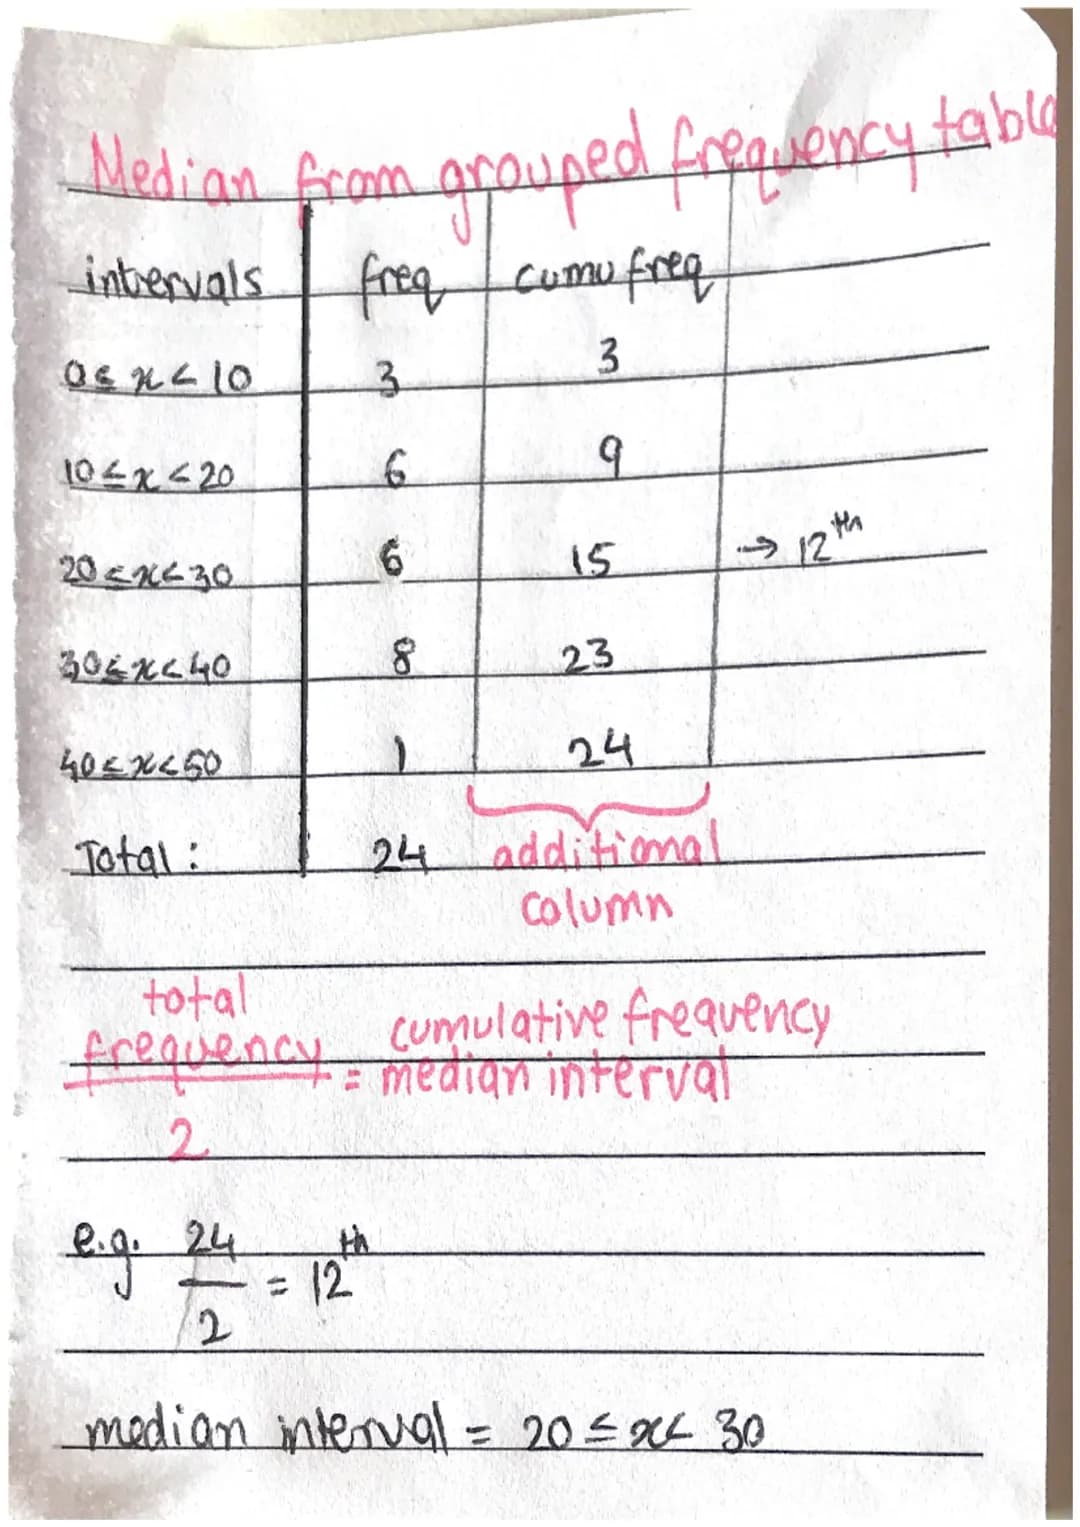 Median from grouped frequency table
intervals freq cumu freq
0≤x<10 3 3
10≤x<20 6 9
20≤x<30 6 15 → 12th
30≤x<40 8 23
40≤x<50 1 24
Total: 24 additional
column
total
frequency
cumulative frequency
= median interval
2
e.g. 24
= 12th
2
median interval = 20≤x<30